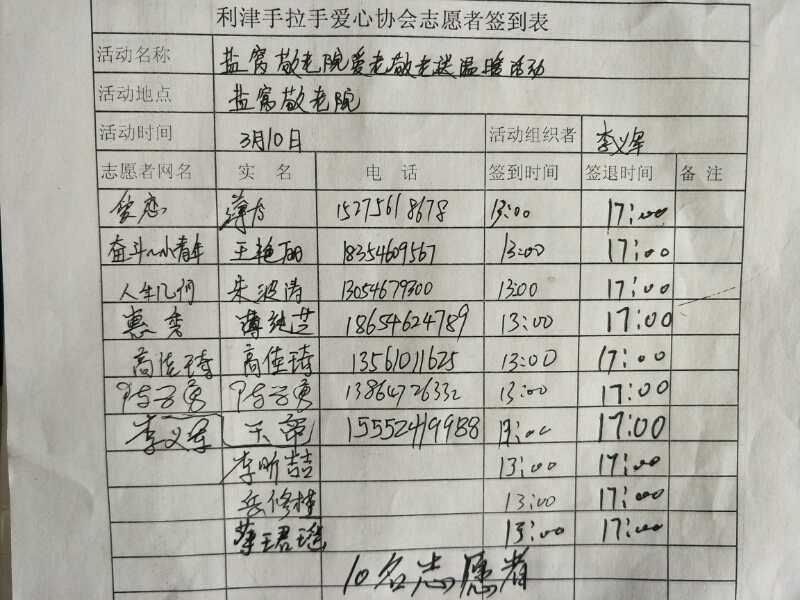 利津手拉手爱心协会志愿者签到表
活动名称 盐窝敬老院爱老敬老送温暖活动
活动地点 盐窝敬老院
活动时间 3月10日 活动组织者 李义军
志愿者网名 实名 电话 签到时间 签退时间 备注
15275618678 13:00 17:00
奋斗小青年 王艳丽 18354609567 13:00 17:00
人生几何 朱波涛 13054679300 13:00 17:00
惠秀 薄纯芝 18654624789 13:00 17:00
高佳琦 高佳琦 13561011625 13:00 17:00
陈子勇 陈子勇 13864726332 13:00 17:00
李义军 15552419988 13:00 17:00
李昕喆 13:00 17:00
岳修 13:00 17:00
13:00 17:00
10名志愿者